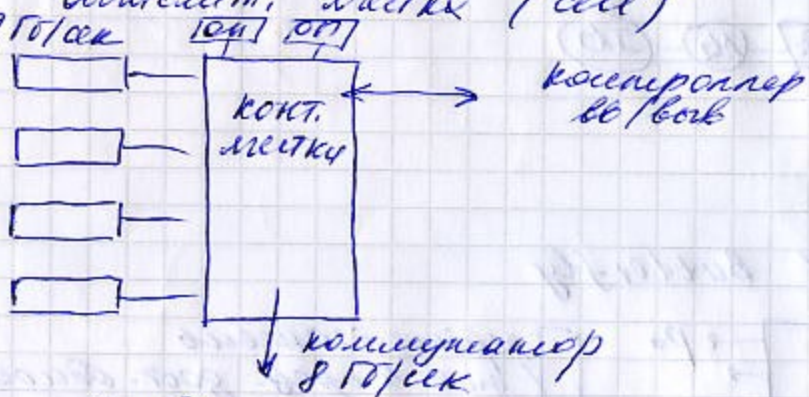 ячейка (
Гб/сек
ОП ОП
конт.
ячейки
контроллер
вв/выв
коммутатор
8 Гб/сек